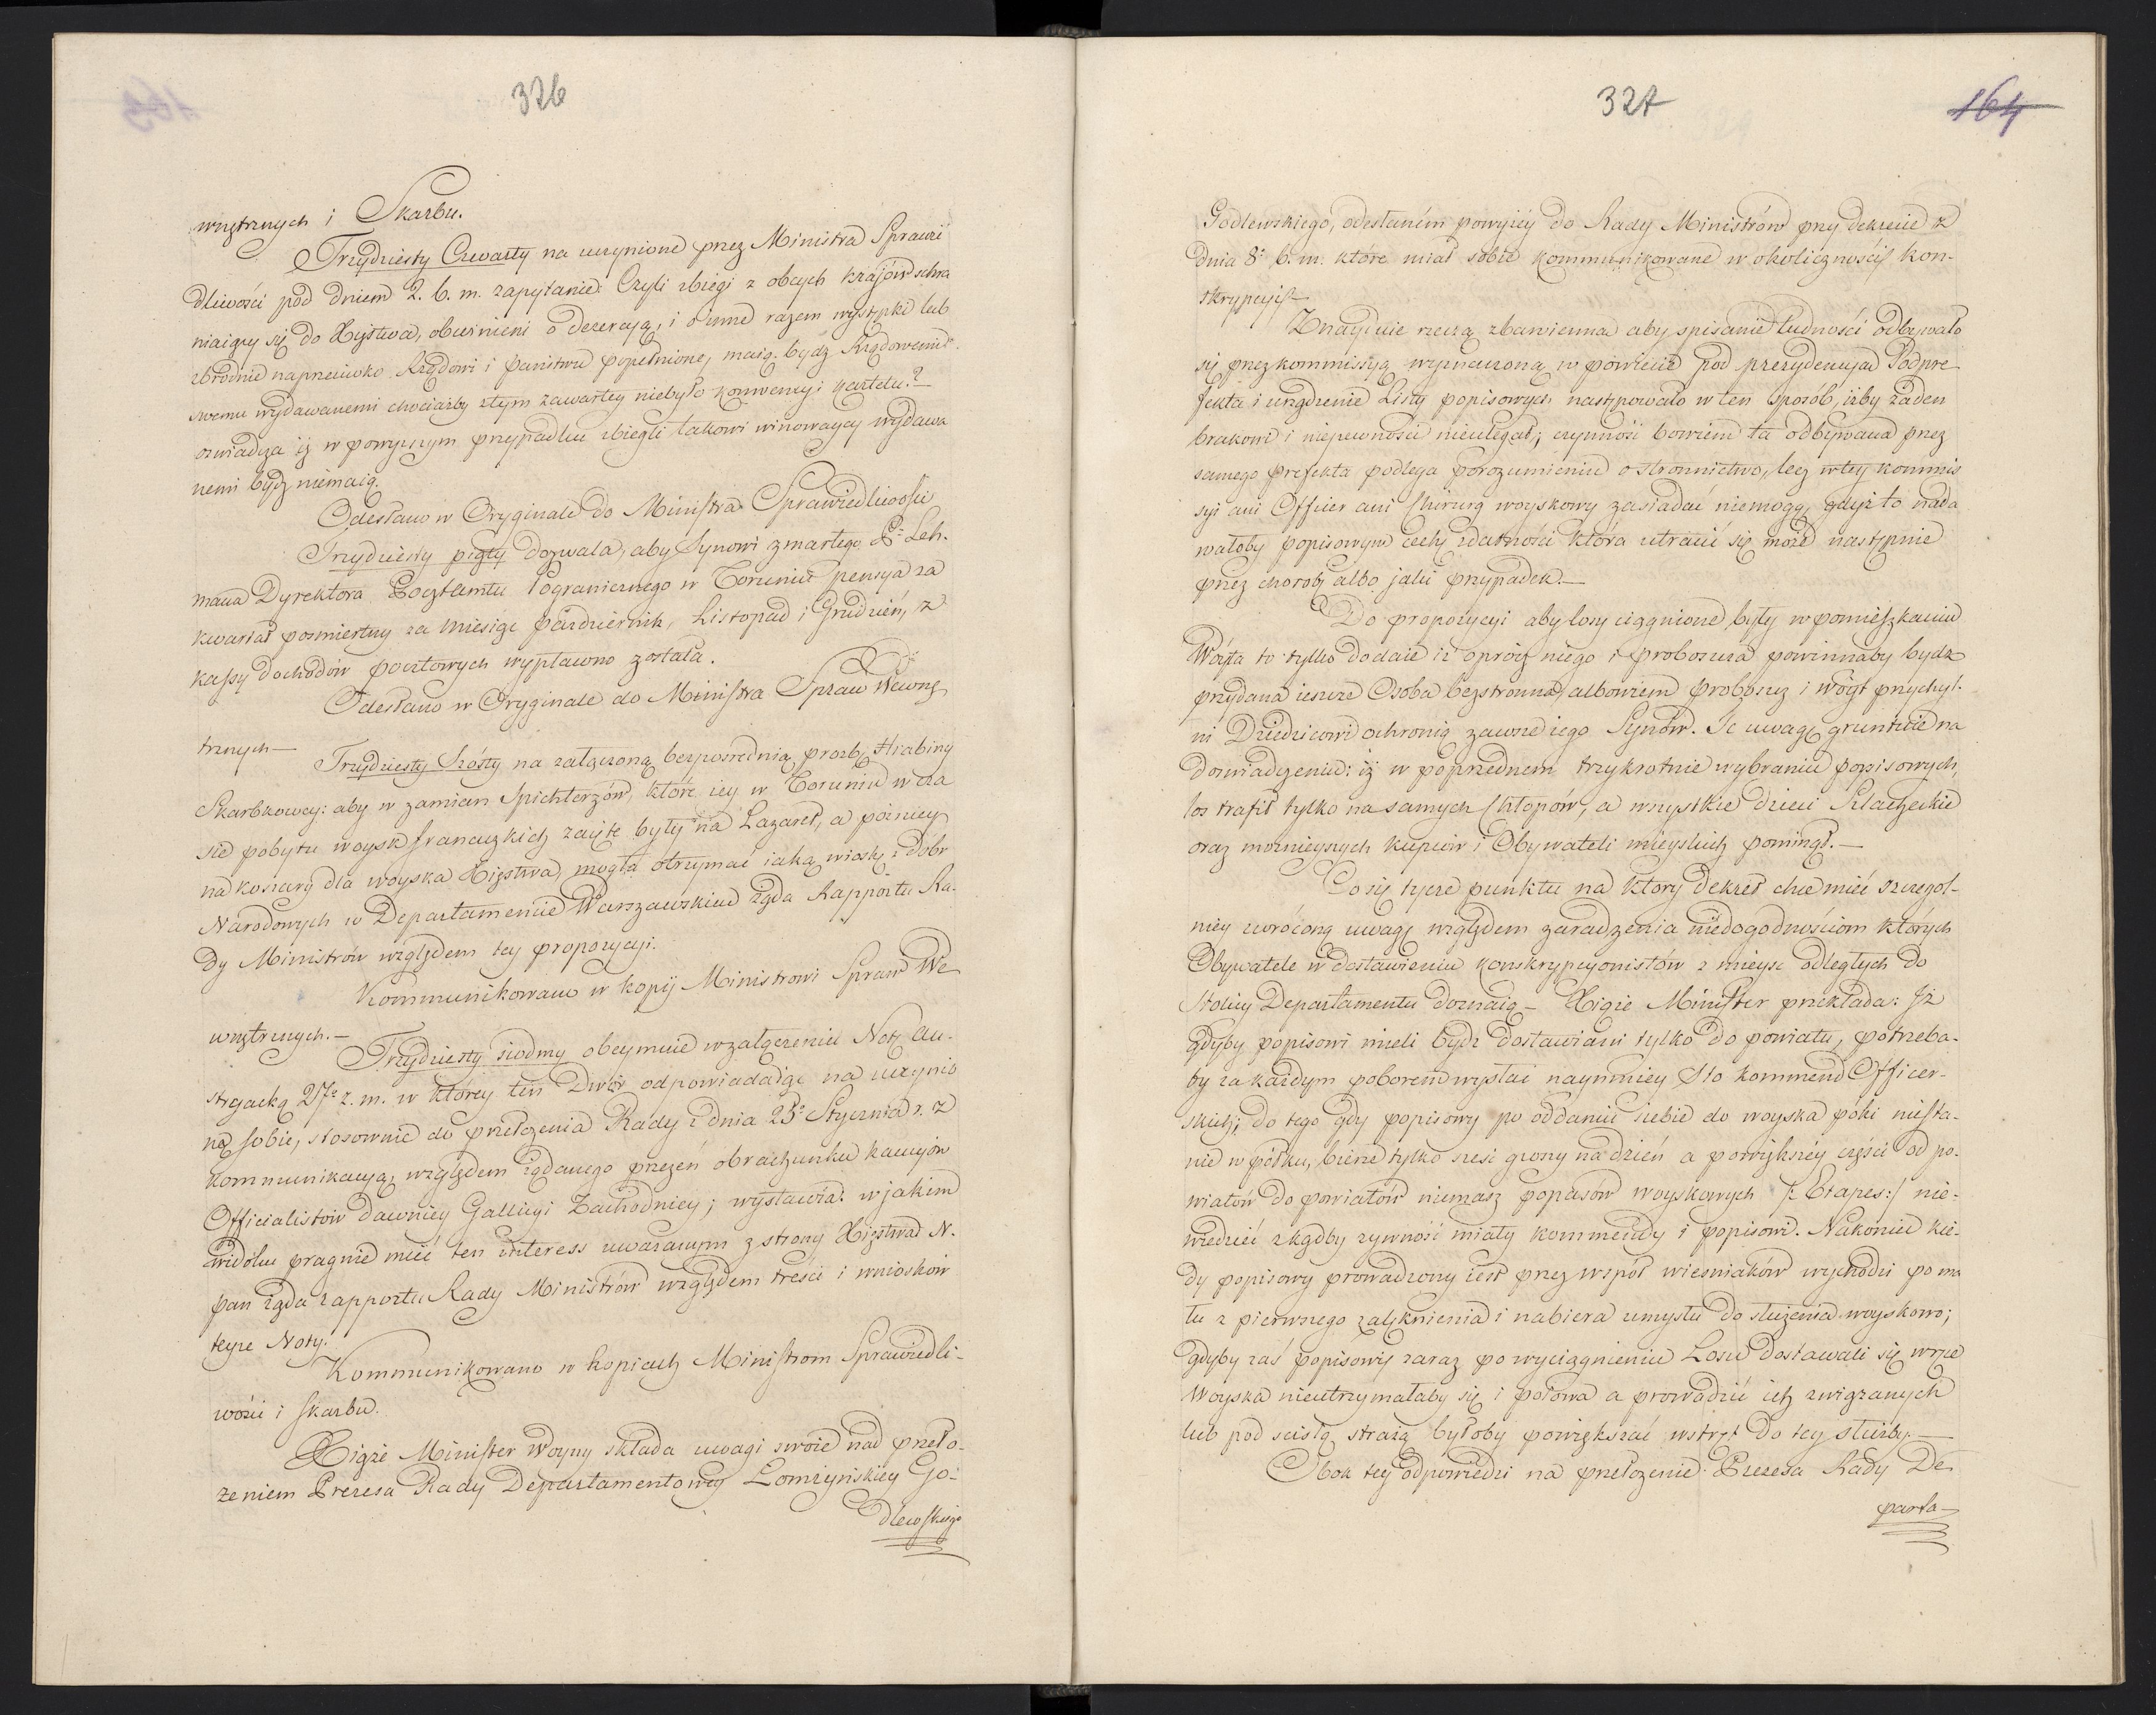 326
wnętrznych i Skarbu.
Trzydziesty Czwarty na uczynione przez Ministra Sprawie
dliwości pod dniem 2. b. m. zapytanie: Czyli zbiegi z obcych krajów schra
niaiący się do Xięstwa, obwinieni o dezercyą, i o inne razem występki lub
zbrodnie naprzeciwko Rządowi i Państwu popełnione, maią bydz Rządowi
swemu wydawanemi chociażby z tym zawartey niebyło konwencyi kartelu?—
oswiadcza iż w powyższym przypadku zbiegli takowi winowaycy wydawa
nemi bydz niemaią.
Odesłano w Oryginale do Ministra Sprawiedliwości
Trzydziesty piąty dozwala, aby Synowi zmarłego P. Leh.
mana Dyrektora Pocztamtu Pogranicznego w Toruniu pensya za
kwartał posmiertny za Miesiące Pazdziernik, Listopad i Grudzień, z
kassy dochodów pocztowych wypłacono została.
Odesłano w Oryginale do Ministra Spraw Wewnę
trznych—
Trzydziesty Szósty na załączoną bezposrednią prozbę Hrabiny
Skarbkowey: aby w zamian Spichlerzów, które iey w Toruniu w cza
sie pobytu woysk francuzkich zaięte były na Lazaret, a poźniey
na koszary dla woyska Xięstwa, mogła otrzymać iaką wioskę z dóbr
Narodowych w Departamencie Warszawskim żąda Rapportu Ra.
dy Ministrów względem tey propozycyi.
Kommunikowano w kopij Ministrowi Spraw We
wnętrznych.—
Trzydziesty siodmy obeymuie w załączeniu Notę Au.
stryacką 27. z. m. w którey ten Dwór odpowiadaiąc na uczynio
ną sobie, stosownie do przełożenia Rady z dnia 25. Stycznia r. z
kommunikacyą, względem żądanego przezeń obrachunku kaucyów
Officialistów dawniey Gallicyi Zachodniey; wystawia: w jakim
widoku pragnie mieć ten interess uważanym z strony Xięstwa N.
Pan żąda rapportu Rady Ministrów względem treści i wniosków
teyże Noty.
Kommunikowano w kopiach Ministrom Sprawiedli-
wości i Skarbu.
Xiąże Minister Woyny składa uwagi swoie nad przeło-
żeniem Prezesa Rady Departamentowey Łomżyńskiey Go-
dlewskiego
327
164
Godlewskiego, odesłaném powyżéy do Rady Ministrów przy dekrecie z
dnia 8. b. m. które miał sobie kommunikowane w okolicznościach kon-
skrypcyi.—
Znayduie rzeczą zbawienną aby spisanie ludności odbywało
się przez kommissyą wyznaczoną w powiecie pod prezydencyą Podpre
fekta i urządzenie Listy popisowych następowało w ten sposób, iżby żaden
brakowi i niepewności nieulegał; czynność bowiem ta odbywana przez
samego Prefekta podlega porozumieniu o stronnictwo, lecz w tey kommis
syi ani Officer ani Chirurg woyskowy zasiadać niemogą, gdyż to nada
wałoby popisowym cechę zdatności która utracić się może następnie
przez chorobę albo jaki przypadek.—
Do propozycyi aby losy ciągnione były w pomieszkaniu
Wóyta to tylko dodaie iż oprócz niego i Proboszcza powinnaby bydz
przydana ieszcze Osoba bezstronna, albowiem Proboszcz i Wóyt przychyl.
ni Dziedzicowi ochronią zawsze iego Synów. Te uwagę gruntuie na
doswiadczeniu: iż w poprzednem trzykrotnie wybraniu popisowych,
los trafił tylko na samych Chłopów, a wszystkie dzieci Szlacheckie
oraz możnieyszych kupców i Obywateli mieyskich pominął.—
Co się tycze punktu na który dekret chce mieć szczegol-
niey zwróconą uwagę względem zaradzenia niedogodnościom których
Obywatele w dostawieniu konskrypcyonistów z mieysc odległych do
Stolicy Departamentu doznaią — Xiąże Minister przekłada: Iż
gdyby popisowi mieli bydz dostawiani tylko do powiatu, potrzeba-
by za każdym poborem wysłać naymniey sto kommend Officer-
skich; do tego gdy popisowy po oddaniu siebie do woyska póki niesta-
nie w półku, bierze tylko szesć groszy na dzień a powiększéy części od po-
wiatów do powiatów niemasz popasów woyskowych /: Etapes:/ nie-
wiedzieć zkądby żywność miały kommendy i popisowi. Nakoniec kie-
dy popisowy prowadzony iest przez współ wiesniaków wychodzi po ma
łu z pierwszego zalęknienia i nabiera umysłu do służenia woyskowo;
gdyby zaś popisowy zaraz po wyciągnieniu Losu dostawali się w ręce
Woyska nieutrzymałaby się i połowa a prowadzić ich związanych
lub pod scisłą strażą byłoby powiększać wstręt do tey służby.—
Obok tey odpowiedzi na przełożenie Prezesa Rady De
parta—